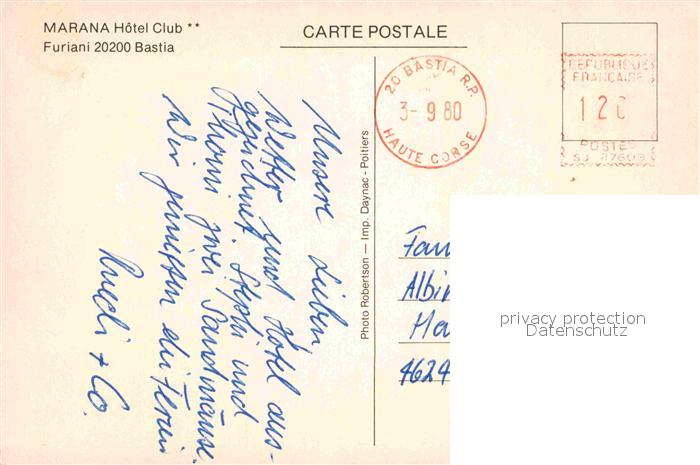 MARANA Hôtel Club **
Furiani 20200 Bastia
CARTE POSTALE
20 BASTIA R.P.
3 - 9 80
HAUTE CORSE
REPUBLIQUE
FRANCAISE
120
POSTES
SJ 27603
Photo Robertson — Imp. Daynac - Poitiers
Unsere Lieben
Wetter und Hotel aus-
gezeichnet. Stephi und
Thomi zwei Sandmäuse.
Wir geniessen die Ferien
Ruedi + Co.
Fam
Albin
Ha
4624
privacy protection
Datenschutz